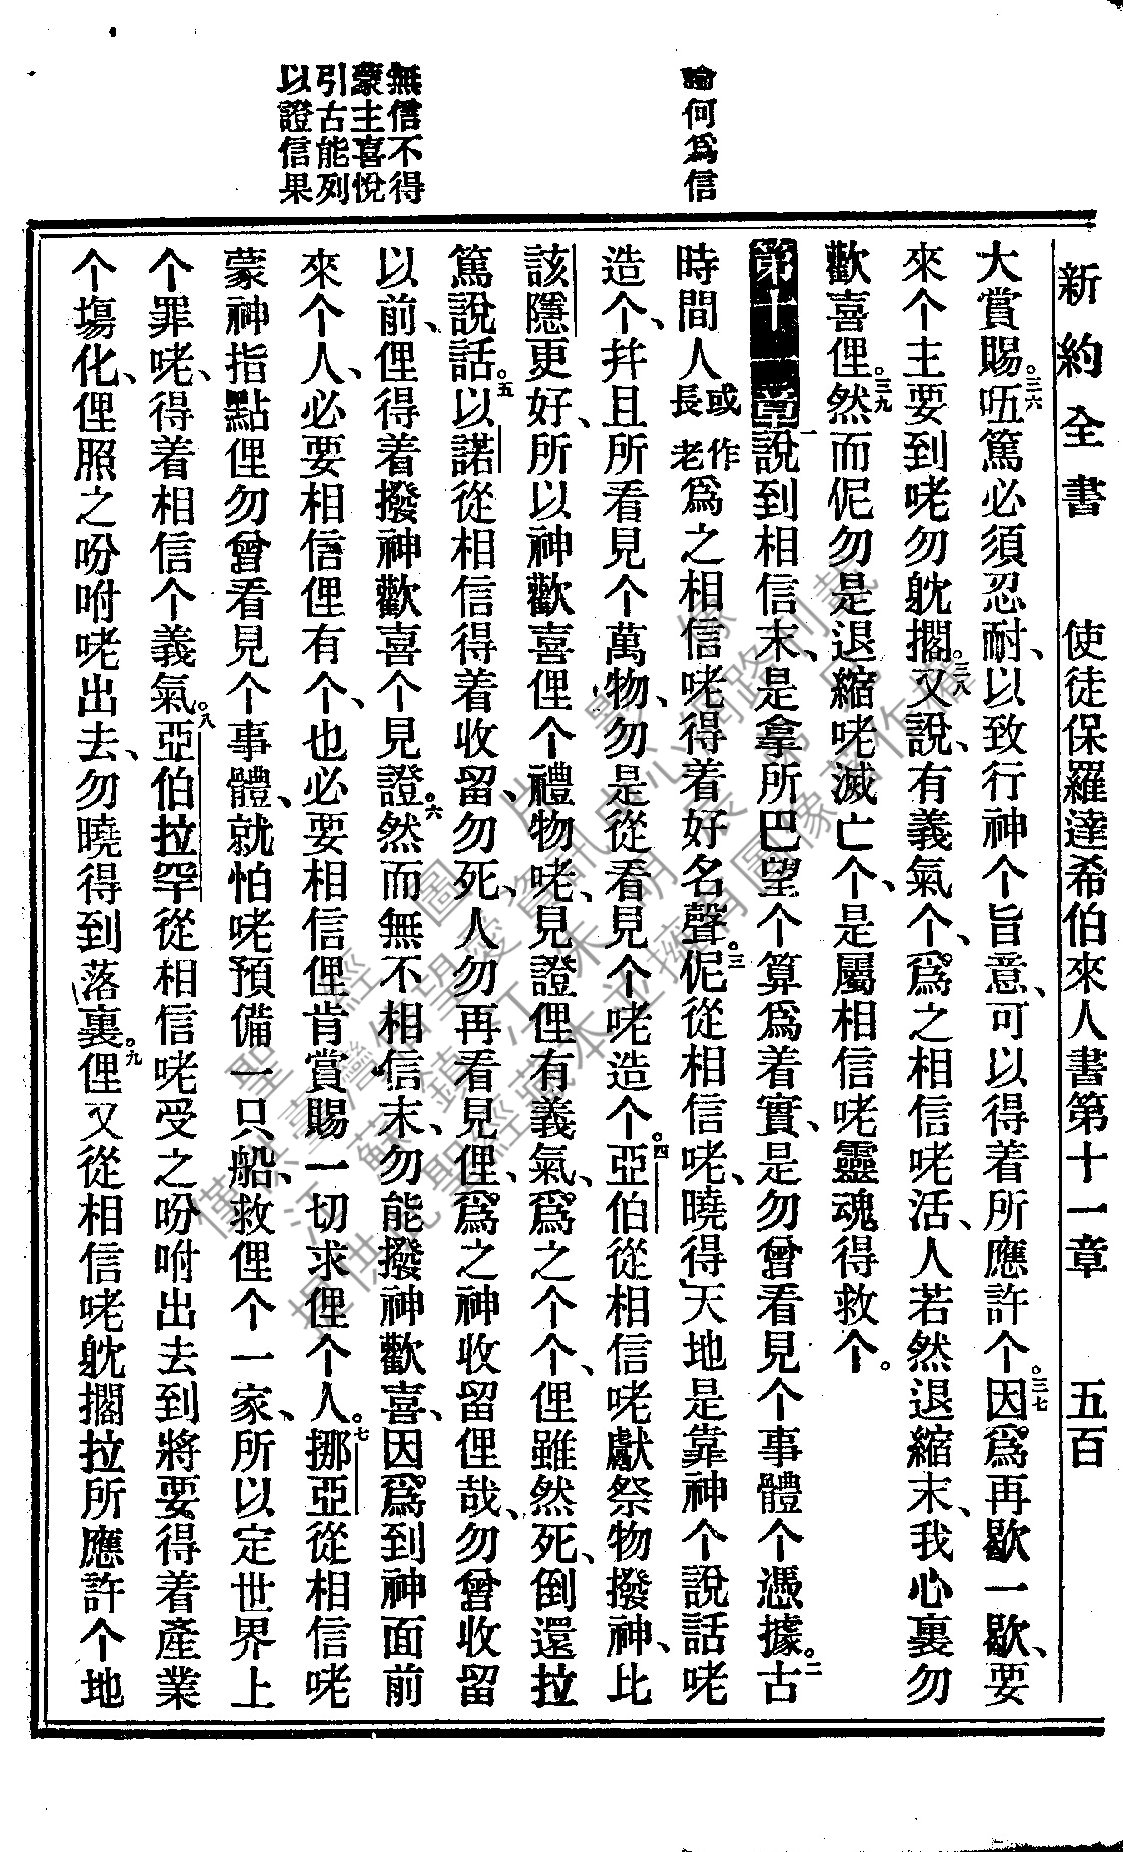 新約全書 使徒保羅達希伯來人書第十一章 五百
論何爲信
無信不得
蒙主喜悅
引古能列
以證信果
大賞賜。三六㕶篤必須忍耐、以致行神个旨意、可以得着所應許个。三七因爲再歇一歇、要
來个主要到咾勿躭擱。三八又說、有義氣个、爲之相信咾活、人若然退縮末、我心裏勿
歡喜俚。三九然而伲勿是退縮咾滅亡个、是屬相信咾靈魂得救个。
第十一章一說到相信末、是拿所巴望个算爲着實、是勿曾看見个事體个憑據。二古
時間人或作長老爲之相信咾得着好名聲。三伲從相信咾、曉得天地是靠神个說話咾
造个、幷且所看見个萬物、勿是從看見个咾造个。四亞伯從相信咾獻祭物撥神、比
該隱更好、所以神歡喜俚个禮物咾、見證俚有義氣、爲之个个、俚雖然死、倒還拉
篤說話。五以諾從相信得着收留、勿死、人勿再看見俚、爲之神收留俚哉、勿曾收留
以前、俚得着撥神歡喜个見證。六然而無不相信末、勿能撥神歡喜、因爲到神面前
來个人、必要相信俚有个、也必要相信俚肯賞賜一切求俚个人。七挪亞從相信咾
蒙神指點俚勿曾看見个事體、就怕咾預備一只船、救俚个一家、所以定世界上
个罪咾、得着相信个義氣。八亞伯拉罕從相信咾受之吩咐出去到將要得着產業
个塲化、俚照之吩咐咾出去、勿曉得到落裏。九俚又從相信咾躭擱拉所應許个地
僅供臺灣信望愛資訊中心網路刊載